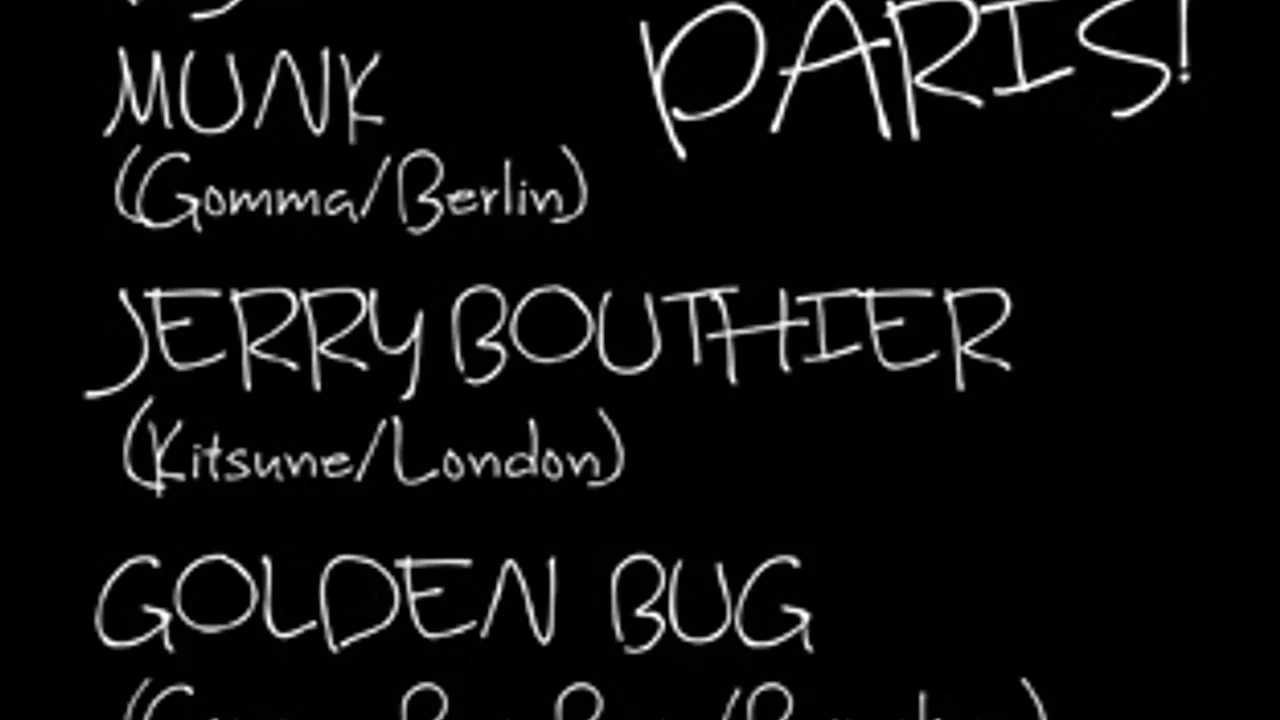 PARIS!
MUNK
(Gomma/Berlin)
JERRY BOUTHIER
(Kitsune/London)
GOLDEN BUG